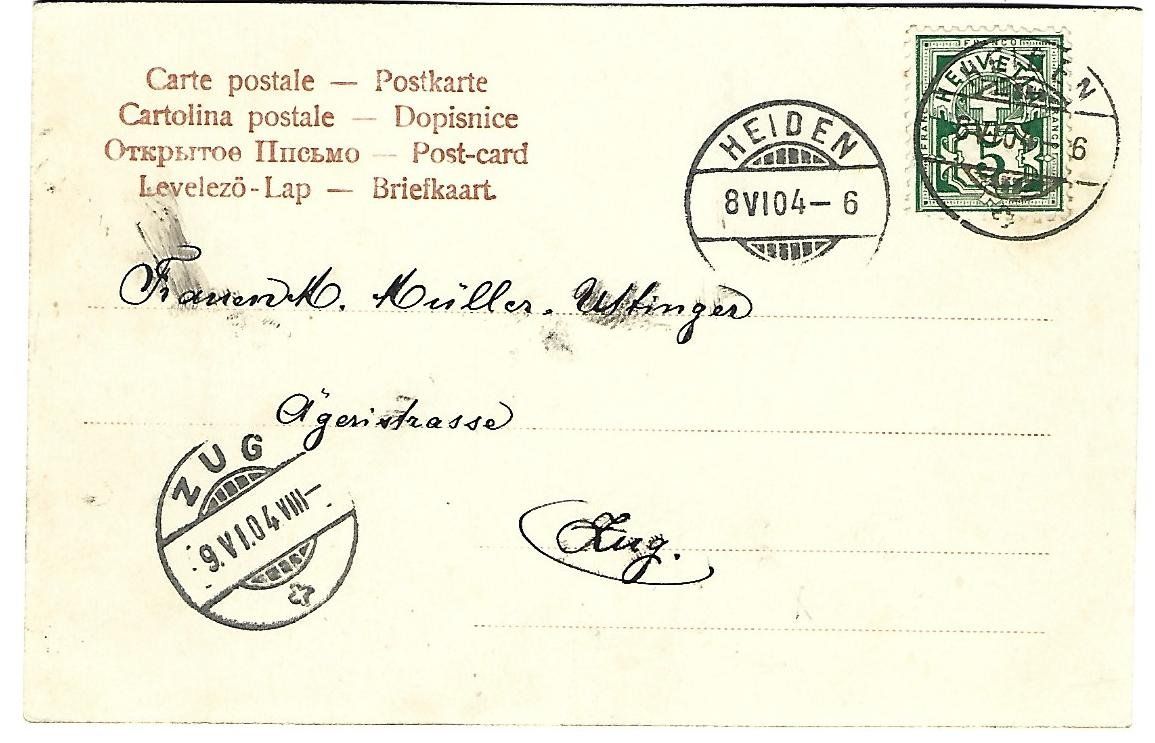 Carte postale — Postkarte
Cartolina postale — Dopisnice
Открытое Письмо — Post-card
Levelezö-Lap — Briefkaart.
HEIDEN
8 VI 04 — 6
FRANCO
HELVETIA
5
8 VI 04 — 6
M. Müller. Uttinger
Ägeristrasse
Zug.
ZUG
9. VI. 04 VIII —